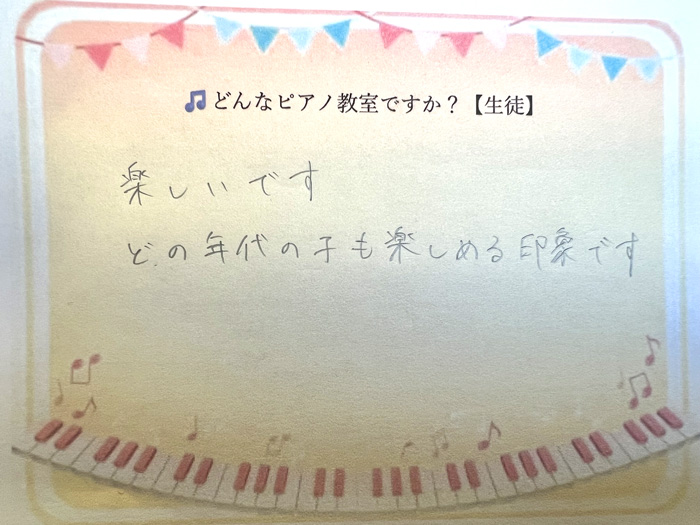 🎵どんなピアノ教室ですか？【生徒】
楽しいです
どの年代の子も楽しめる印象です